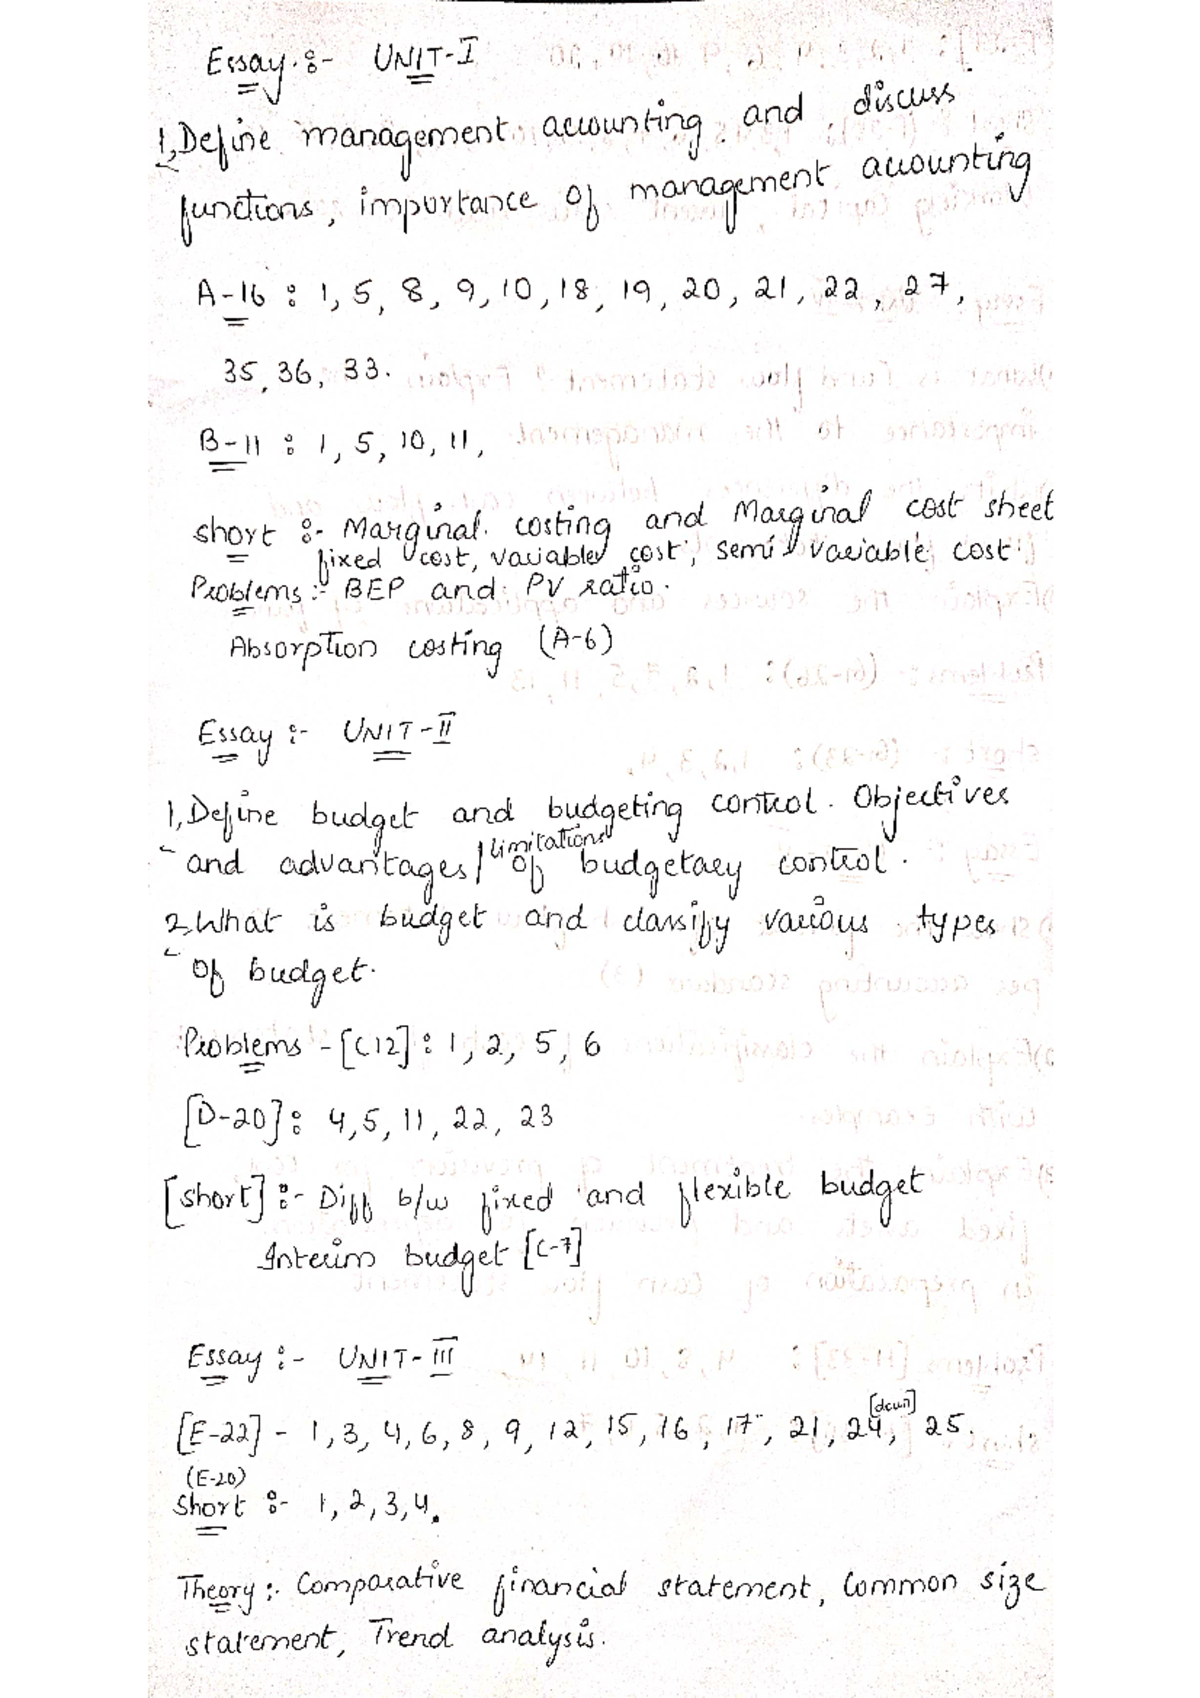 Essay :- UNIT-I
1, Define management accounting and discuss
functions, importance of management accounting
A-16 : 1, 5, 8, 9, 10, 18, 19, 20, 21, 22, 27,
35, 36, 33.
B-11 : 1, 5, 10, 11,
short :- Marginal costing and Marginal cost sheet
fixed cost, variable cost, semi variable cost
Problems :- BEP and PV ratio.
Absorption costing (A-6)
Essay :- UNIT-II
1, Define budget and budgeting control. Objectives
and advantages/limitations of budgetary control.
2, What is budget and classify various types
of budget.
Problems - [C12] : 1, 2, 5, 6
[D-20] : 4, 5, 11, 22, 23
[short] :- Diff b/w fixed and flexible budget
Interim budget [C-7]
Essay :- UNIT-III
[E-22] - 1, 3, 4, 6, 8, 9, 12, 15, 16, 17, 21, 24, 25.
(E-20)
Short :- 1, 2, 3, 4.
Theory :- Comparative financial statement, Common size
statement, Trend analysis.